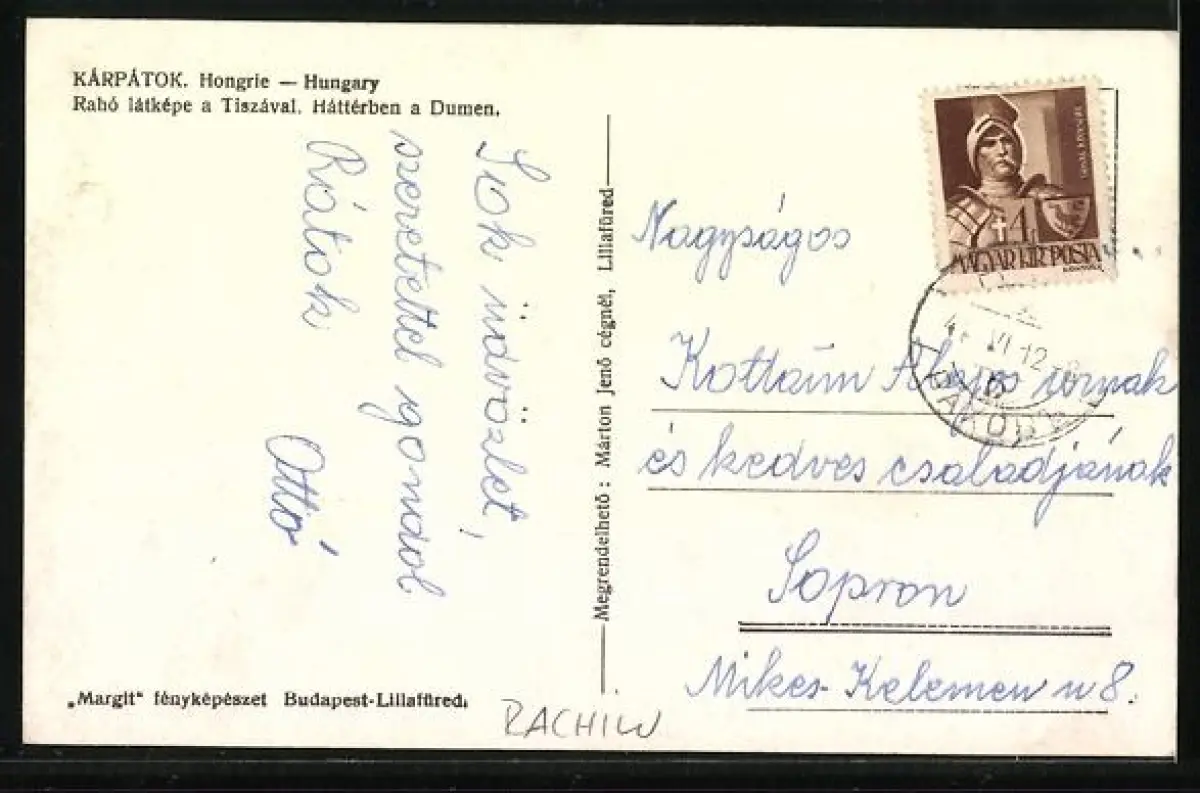 KÁRPÁTOK. Hongrie — Hungary
Rahó látképe a Tiszával. Háttérben a Dumen.
Sok üdvözlet,
szeretettel gondol
Rátok
Ottó
„Margit“ fényképészet Budapest-Lillafüred.
Megrendelhető: Márton Jenő cégnél, Lillafüred
RACHIW
4
MAGYAR KIR. POSTA
VI 12
Nagyságos
Alajos úrnak
és kedves családjának
Sopron
Mikes Kelemen u 8.